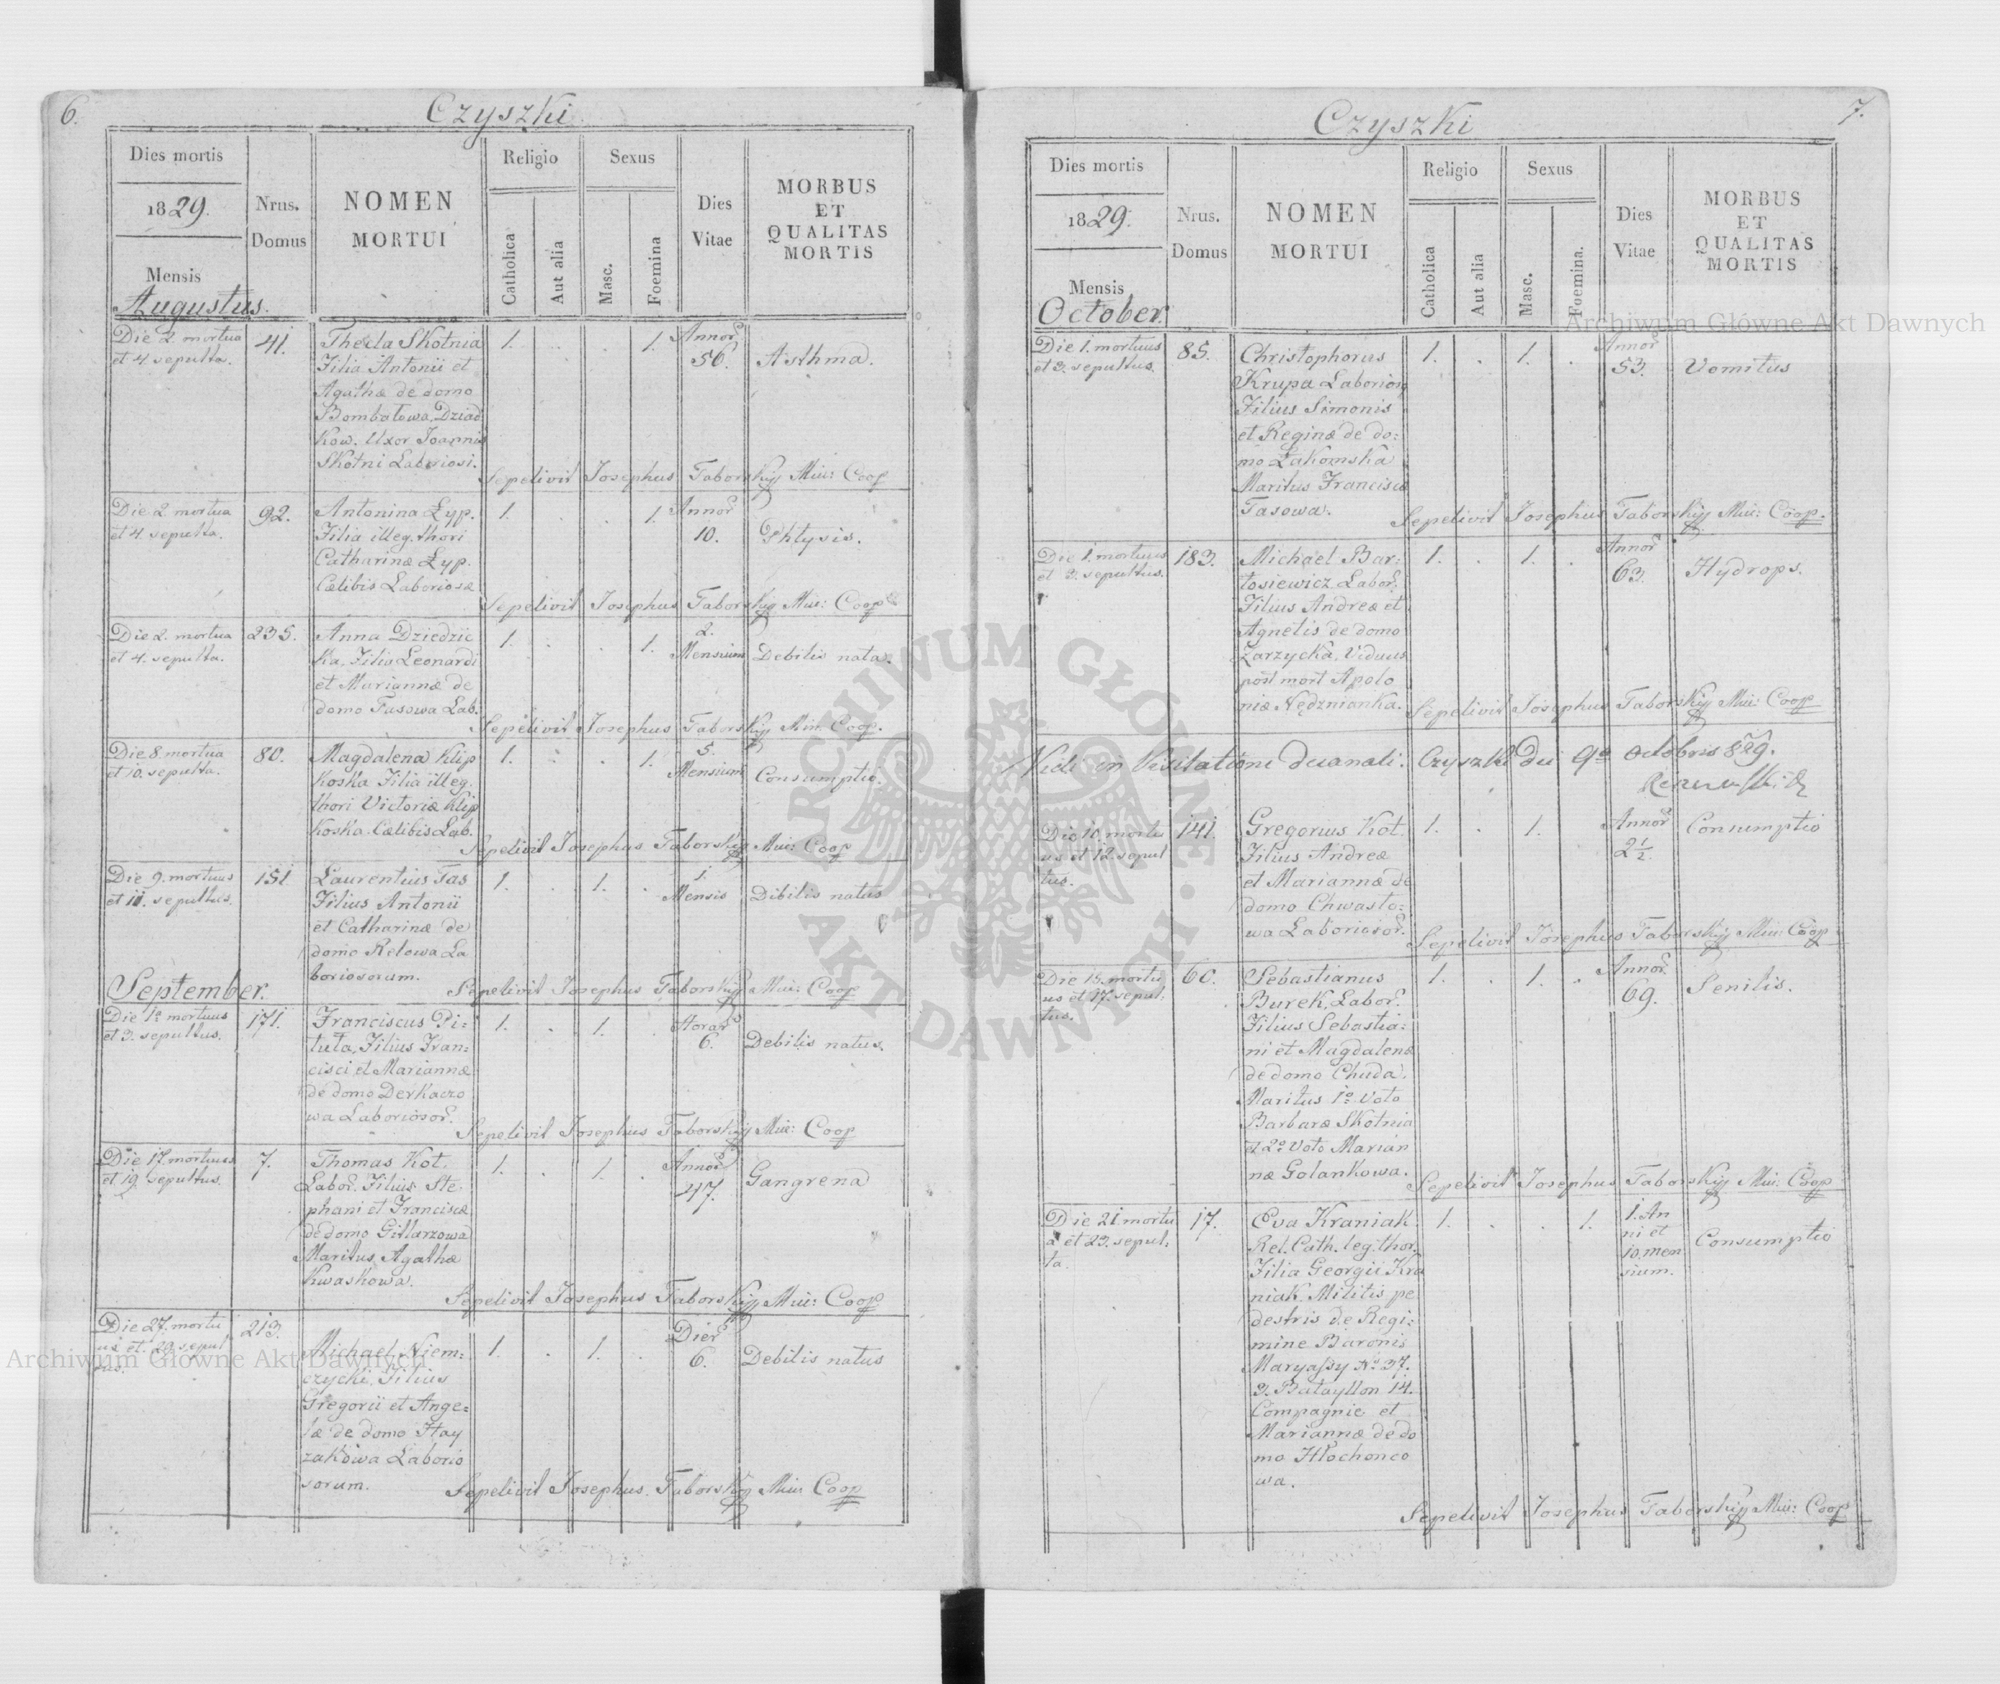 6.
Czyszki
Dies mortis
1829.
Mensis
Augustus.
Nrus. Domus
NOMEN MORTUI
Religio
Catholica
Aut alia
Sexus
Masc.
Foemina
Dies Vitae
MORBUS ET QUALITAS MORTIS
Die 2. mortua
et 4. sepulta.
41.
Thecla Skotnia
Filia Antonii et
Agathæ de domo
Bombałowa, Dziad
kow. Uxor Joannis
Skotni Laboriosi.
1. . . 1.
Annor.
56.
Asthma.
Sepelivit Josephus Taborskijj Mii: Coop
Die 2. mortua
et 4. sepulta.
92.
Antonina Łyp.
Filia illeg. thori
Catharinæ Łyp.
Cælibis Laboriosæ
1. . . 1.
Annor.
10.
Phtysis.
Sepelivit Josephus Taborskijj Mii: Coop
Die 2. mortua
et 4. sepulta.
235.
Anna Dziedzic
ka, Filia Leonardi
et Mariannæ de
domo Tasowa Lab.
1. . . 1.
2.
Mensium
Debilis nata.
Sepelivit Josephus Taborskijj Mii: Coop.
Die 8. mortua
et 10. sepulta.
80.
Magdalena Klip
koska Filia illeg.
thori Victoriæ Klip
koska Cælibis Lab.
1. . . 1.
5.
Mensium
Consumptio.
Sepelivit Josephus Taborskijj Mii: Coop
Die 9. mortuus
et 11. sepultus.
151
Laurentius Tas
Filius Antonii
et Catharinæ de
domo Relowa La
boriosorum.
1. . 1. .
1.
Mensis
Dibilis natus
Sepelivit Josephus Taborskijj Mii: Coop
September.
Die 1a mortuus
et 3. sepultus.
171.
Franciscus Pi:
tuła, Filius Fran:
cisci et Mariannæ
de domo Derkaczo
wa Laboriosor.
1. . 1. .
Horar.
6.
Debilis natus.
Sepelivit Josephus Taborskijj Mii: Coop
Die 17. mortuus
et 19. sepultus.
7.
Thomas Kot.
Labor. Filius Ste
phani et Franciscæ
de domo Gitlarzowa
Maritus Agathæ
Kwaskowa.
1. . 1. .
Annor.
47.
Gangrena
Sepelivit Josephus Taborskijj Mii: Coop
Die 27. mortu
us et 29. sepul
tus.
213.
Michael Niem:
czycki, Filius
Gregorii et Ange:
læ de domo Hay
zakowa Laborio
sorum.
1. . 1. .
Dier.
6.
Debilis natus
Sepelivit Josephus Taborskijj Mii: Coop
7.
Czyszki
Dies mortis
1829.
Mensis
October.
Nrus. Domus
NOMEN MORTUI
Religio
Catholica
Aut alia
Sexus
Masc.
Foemina.
Dies Vitae
MORBUS ET QUALITAS MORTIS
Die 1. mortuus
et 3. sepultus.
85.
Christophorus
Krupa Laborios,
Filius Simonis
et Reginæ de do:
mo Łakomska
Maritus Franciscæ
Tasowa.
1. . 1. .
Annor.
53.
Vomitus
Sepelivit Josephus Taborskijj Mii: Coop.
Die 1. mortuus
et 3. sepultus.
183.
Michael Bar:
tosiewicz Labor.
Filius Andreæ et
Agnetis de domo
Zarzycka, Viduus
post mort Apolo
niæ Nędznianka.
1. . 1. .
Annor.
63.
Hydrops.
Sepelivit Josephus Taborskijj Mii: Coop
Vidi in Visitatione decanali. Czyszki die 9a Octobris 829.
Die 10. mortu
us et 12. sepul
tus.
141.
Gregorius Kot.
Filius Andreæ
et Mariannæ de
domo Chwasto:
wa Laboriosor.
1. . 1.
Annor.
2 1/2.
Consumptio
Sepelivit Josephus Taborskijj Mii: Coop
Die 15. mortu
us et 17. sepul:
tus.
60.
Sebastianus
Burek, Labor.
Filius Sebastia:
ni et Magdalenæ
de domo Chuda.
Maritus 1o Voto
Barbaræ Skotnia
et 2o Voto Marian
næ Golankowa.
1. . 1. .
Annor.
69.
Senilis.
Sepelivit Josephus Taborskijj Mii: Coop
Die 21 mortu
a et 23. sepul:
ta.
17.
Eva Kraniak.
Rel. Cath. leg. thor.
Filia Georgii Kra
niak Militis pe
destris de Regi:
mine Baronis
Maryaſsy No 37.
3. Batayllon 14.
Compagnie et
Mariannæ de do
mo Hłochonco
wa.
1. . . 1.
1. An
ni et
10. men
sium.
Consumptio
Sepelivit Josephus Taborskijj Mii: Coop
Archiwum Główne Akt Dawnych
Archiwum Główne Akt Dawnych
ARCHIWUM GŁÓWNE · AKT DAWNYCH ·